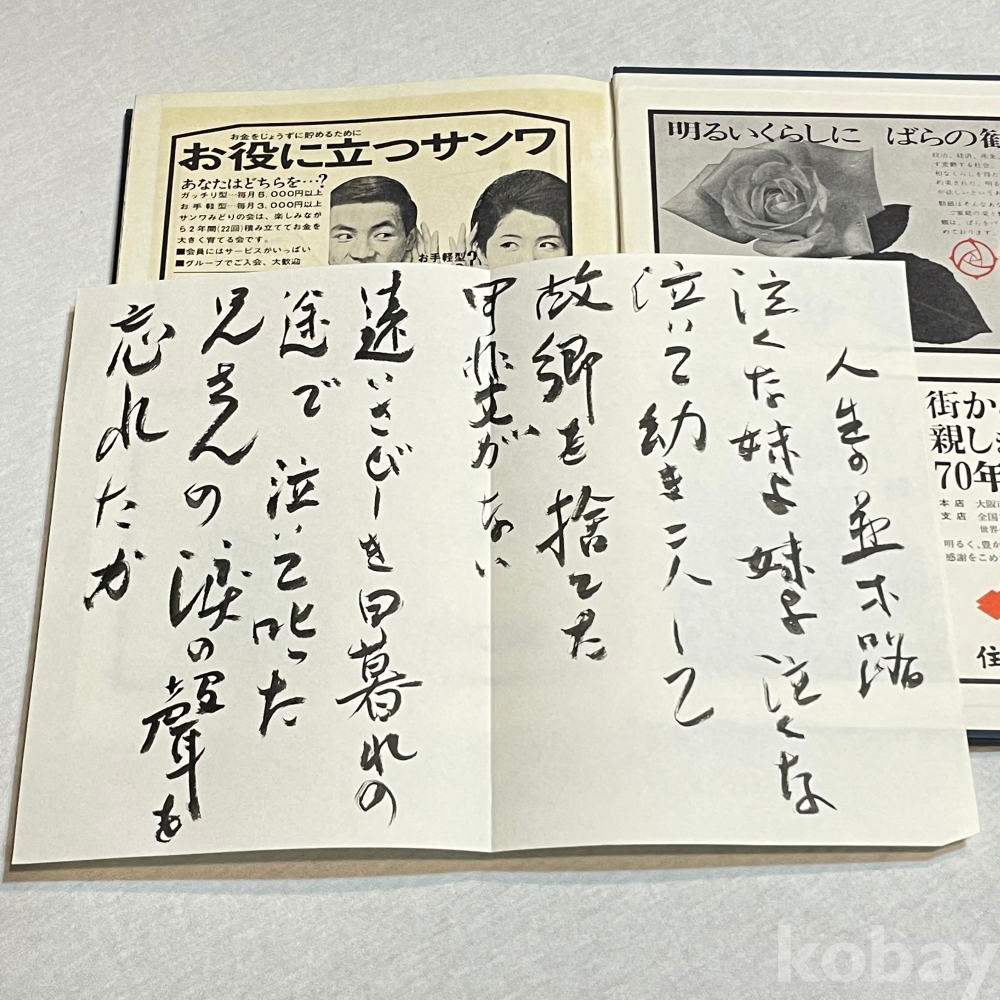 お金をじょうずに貯めるために
お役に立つサンワ
あなたはどちらを…?
ガッチリ型…毎月5,000円以上
お手軽型…毎月3,000円以上
サンワみどりの会は、楽しみなが
ら2年間(22回)積み立ててお金を
大きく育てる会です。
■会員にはサービスがいっぱい
■グループでご入会、大歓迎
お手軽型?
明るいくらしに ばらの
街か
親し
70年
本店 大阪市
支店 全国
世界
明るく、豊か
感謝をこめ
住
人生の並木路
泣くな妹よ妹よ泣くな
泣いて幼き二人して
故郷を捨てた
甲斐がない
遠いさびしき日暮れの
途で泣いて叱った
兄さんの涙の聲を
忘れたか
kobay